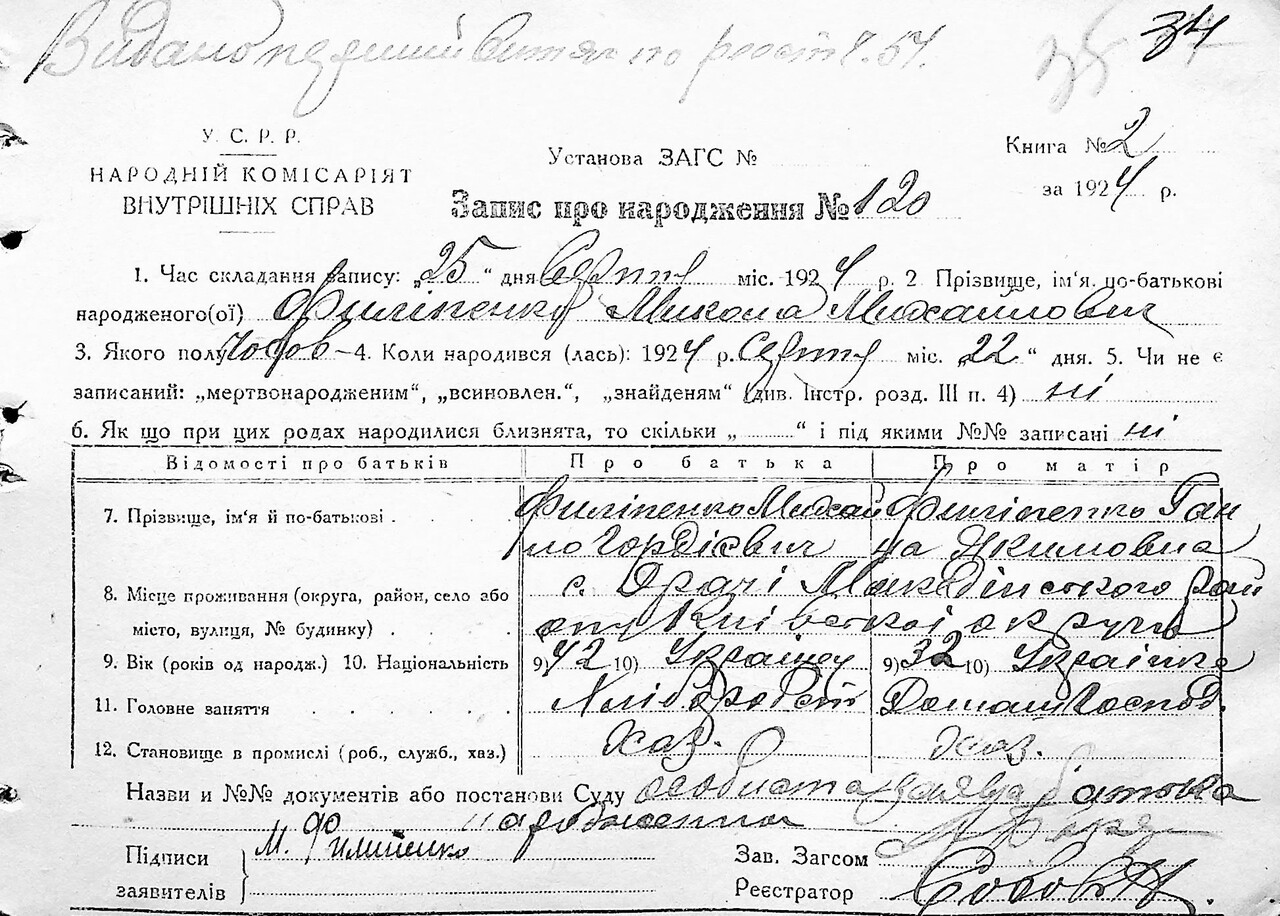 Видано первий витяг по реєст. 54.
34
У. С. Р. Р.
НАРОДНІЙ КОМІСАРІЯТ
ВНУТРІШНІХ СПРАВ
Установа ЗАГС №
Книга № 2
за 1924 р.
Запис про народження № 120
1. Час складання запису: „25“ дня Серпня міс. 1924 р. 2 Прізвище, ім‘я, по-батькові
народженого(ої) Филіпенко Микола Михайлович
3. Якого полу Чолов – 4. Коли народився (лась): 1924 р. Серпня міс. „22“ дня. 5. Чи не є
записаний: „мертвонародженим“, „всиновлен.“, „знайденям“ (див. Інстр. розд. III п. 4) ні
6. Як що при цих родах народилися близнята, то скільки „ “ і під якими №№ записані ні
Відомості про батьків Про батька Про матір
7. Прізвище, ім‘я й по-батькові Филіпенко Михайло Гордієвич Филіпенко Ганна Якимовна
8. Місце проживання (округа, район, село або
місто, вулиця, № будинку) с. Драчі Макединського району Київської округи
9. Вік (років од народж.) 10. Національність 9) 42 10) Українец 9) 32 10) Українка
11. Головне заняття Хлібороб Домашн Господ.
12. Становище в промислі (роб., служб., хаз.) хаз. хаз.
Назви и №№ документів або постанови Суду особиста заява батька
народження
Підписи
заявителів
М. Филипенко
Зав. Загсом
Реєстратор